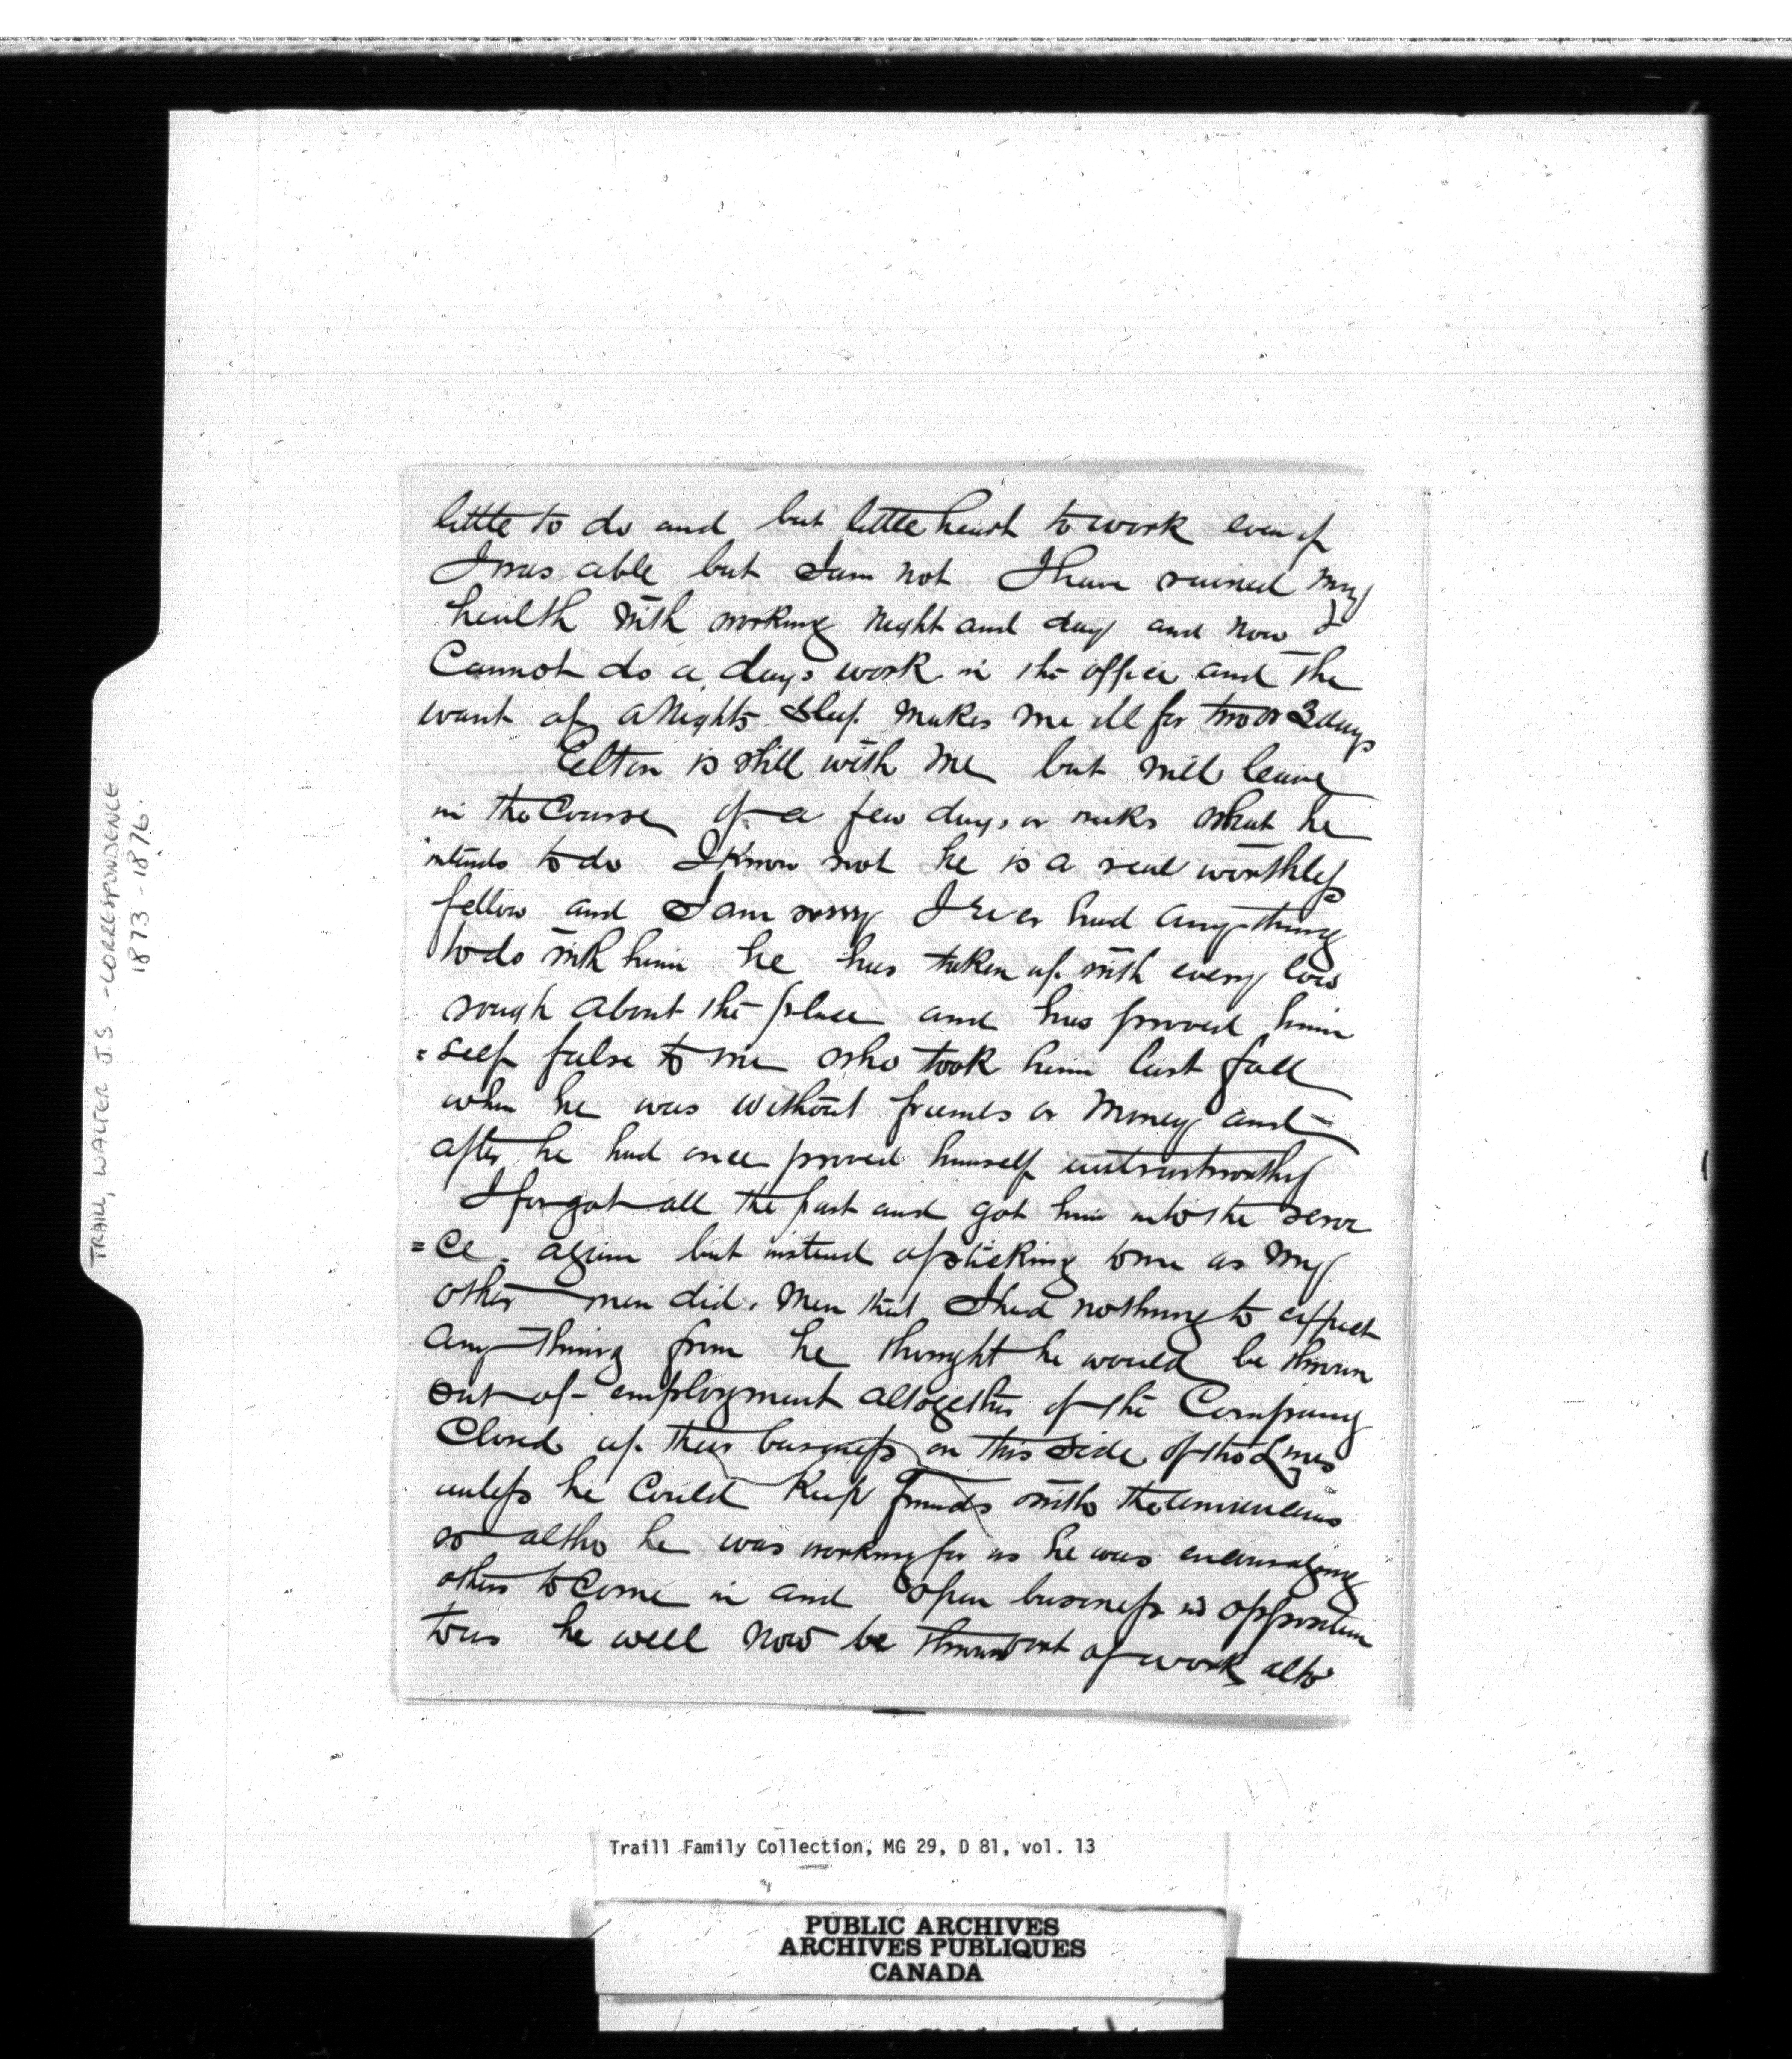 little to do and but little heart to work even if
I was able but I am not I have ruined my
health with working night and day and now I
Cannot do a days work in the office and the
want of a Nights sleep makes me ill for two or 3 days
Elton is still with me but will leave
in the Course of a few days or weeks what he
intends to do I Know not he is a real worthless
fellow and I am sorry I ever had any-thing
to do with him he has taken up with every low
rough about the place and has proved him
=self false to me who took him last fall
when he was without friends or money and
after he had once proved himself untrustworthy
I forgot all the past and got him into the servi
=ce. again but instead of sticking to me as my
other men did. Men that I had nothing to expect
any-thing from he thought he would be thrown
out of employment altogether if the Company
Closed up their business on this side of the Lines
unless he Could Keep friends with the Americans
so altho he was working for us he was encouraging
others to Come in and open business in opposition
to us he will now be thrown out of work alto
TRAILL, WALTER J.S. - CORRESPONDENCE
1873-1876.
Traill Family Collection, MG 29, D 81, vol. 13
PUBLIC ARCHIVES
ARCHIVES PUBLIQUES
CANADA